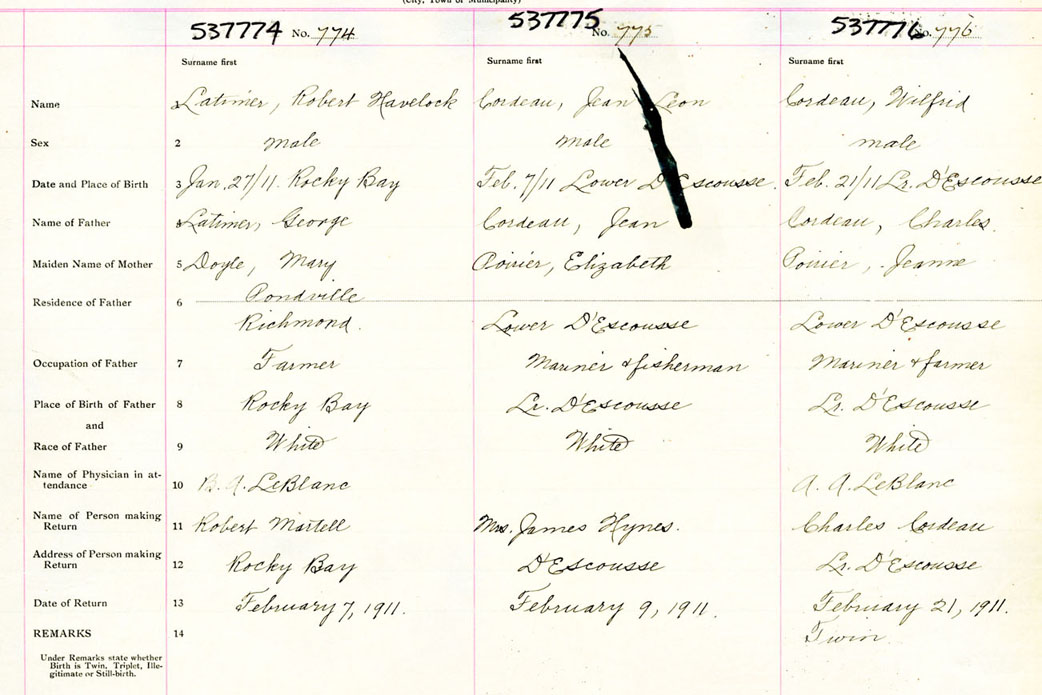 (City, Town or Municipality)
537774 No. 774 537775 No. 775 537776 No. 776
Surname first Surname first Surname first
Name 1 Latimer, Robert Havelock Cordeau, Jean Leon Cordeau, Wilfrid
Sex 2 male male male
Date and Place of Birth 3 Jan. 27/11. Rocky Bay Feb. 7/11 Lower D'Escousse. Feb. 21/11 Lr. D'Escousse
Name of Father 4 Latimer, George Cordeau, Jean Cordeau, Charles.
Maiden Name of Mother 5 Doyle, Mary Poirier, Elizabeth Poirier, Jeanne
Pondville
Residence of Father 6
Richmond. Lower D'Escousse Lower D'Escousse
Occupation of Father 7 Farmer Mariner & fisherman Mariner & farmer
Place of Birth of Father 8 Rocky Bay Lr. D'Escousse Lr. D'Escousse
and
Race of Father 9 White White White
Name of Physician in at-
tendance 10 B. A. LeBlanc A. A. LeBlanc
Name of Person making
Return 11 Robert Martell Mrs. James Hynes. Charles Cordeau
Address of Person making
Return 12 Rocky Bay D'Escousse Lr. D'Escousse
Date of Return 13 February 7, 1911. February 9, 1911. February 21, 1911.
REMARKS 14 Twin.
Under Remarks state whether
Birth is Twin, Triplet, Ille-
gitimate or Still-birth.